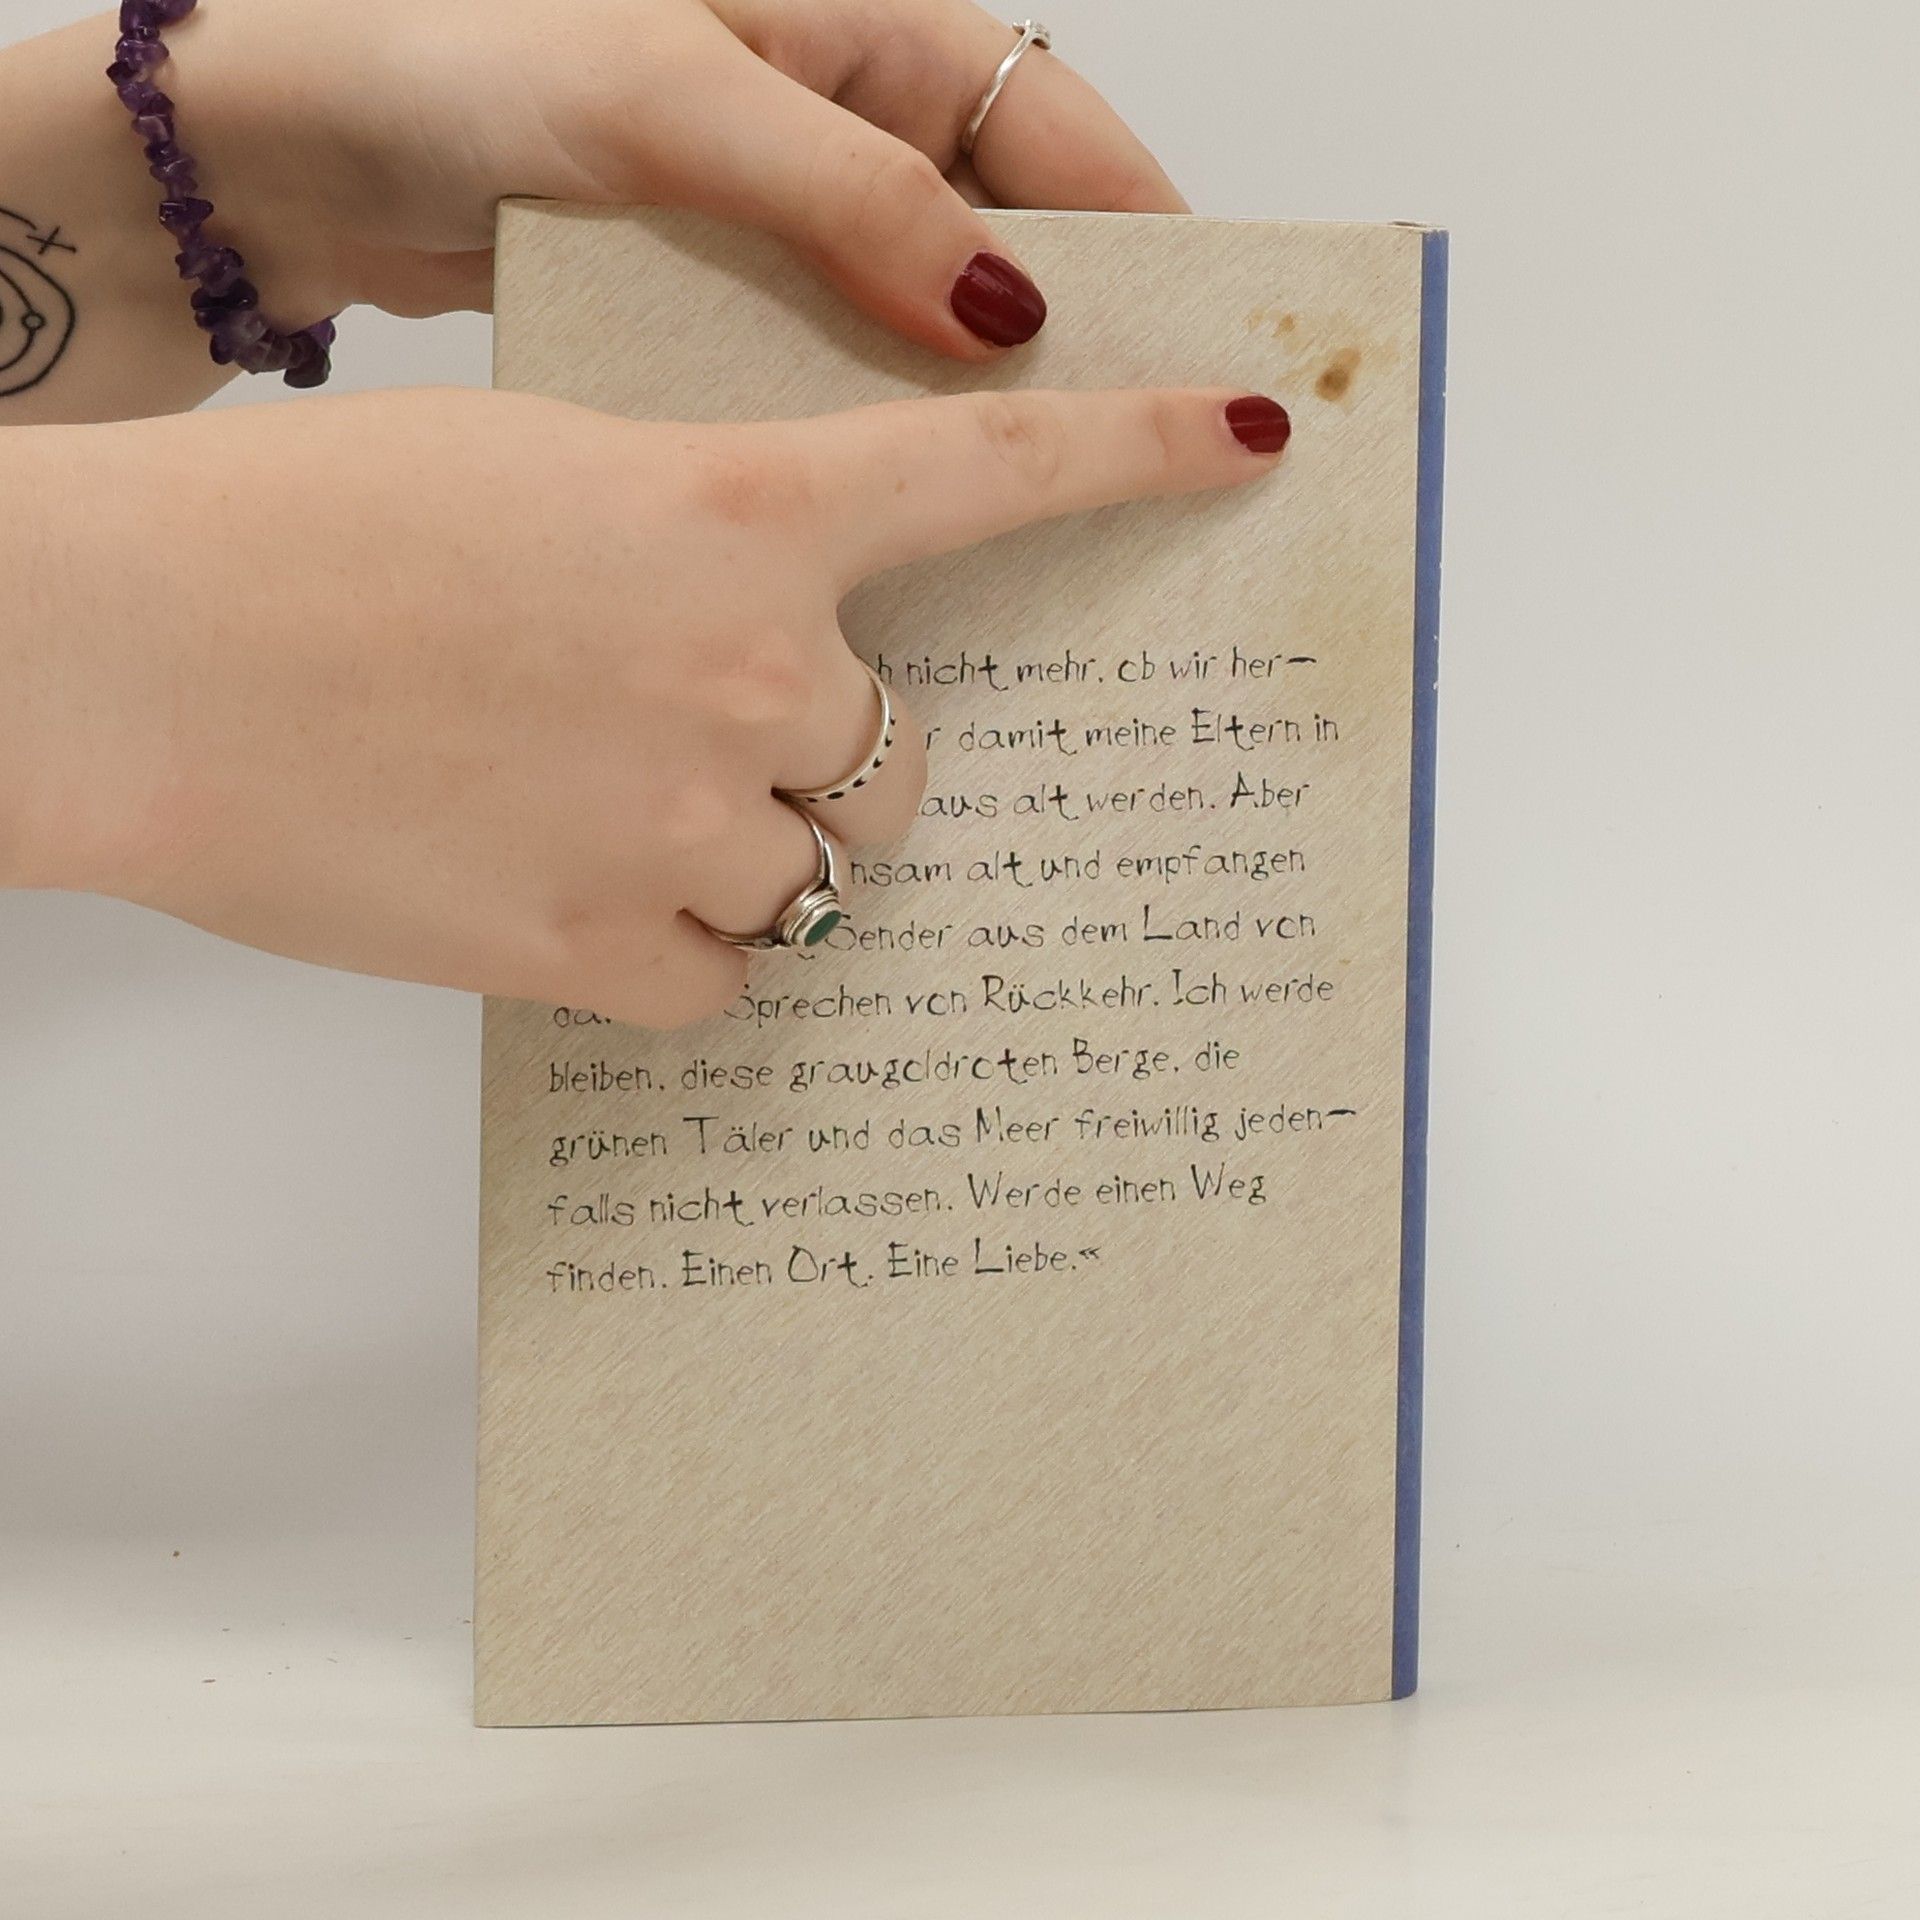 nicht mehr, ob wir her-
damit meine Eltern in
alt werden. Aber
alt und empfangen
Sender aus dem Land von
Sprechen von Rückkehr. Ich werde
bleiben, diese graugoldroten Berge, die
grünen Täler und das Meer freiwillig jeden-
falls nicht verlassen. Werde einen Weg
finden. Einen Ort. Eine Liebe.«